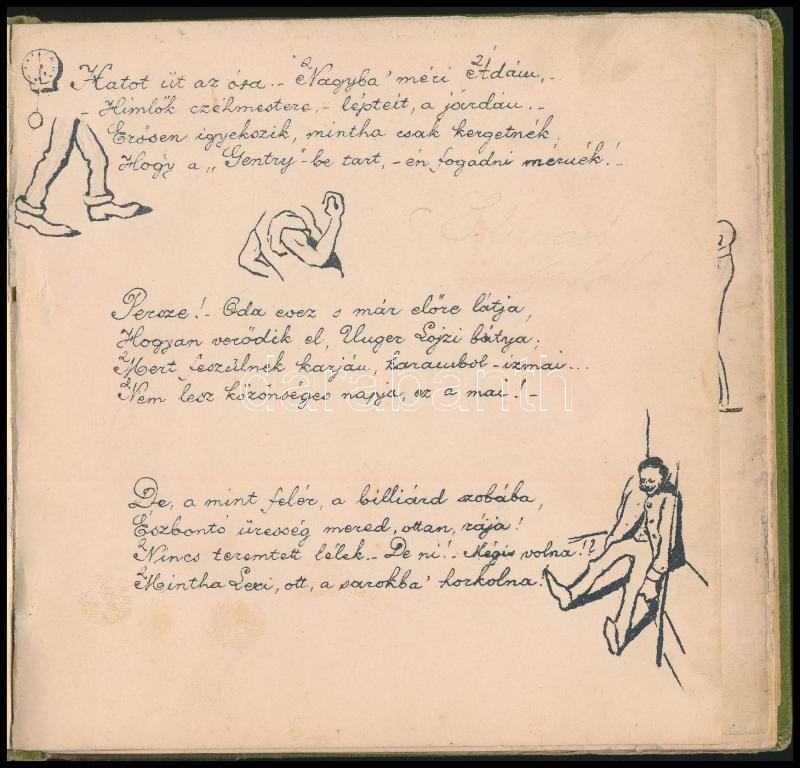 Hatot üt az óra.- Nagyba' méri Ádám,-
- Hímlők czéhmestere,- lépteit, a járdán.-
Erősen igyekszik, mintha csak kergetnék,
Hogy a „Gentry"-be tart,- én fogadni mernék!-
Persze!- Oda evez s már előre látja,
Hogyan verődik el, Unger Lojzi bátya;
Mert feszülnek karján, karamból-izmai...
Nem lesz közönséges napja, ez a mai!-
darabanth
De, a mint felér, a billiárd szobába,
Észbontó üresség mered, ottan, rája!
Nincs teremtett lélek.- De ni!- Mégis volna!?
Mintha Lexi, ott, a sarokba' horkolna!